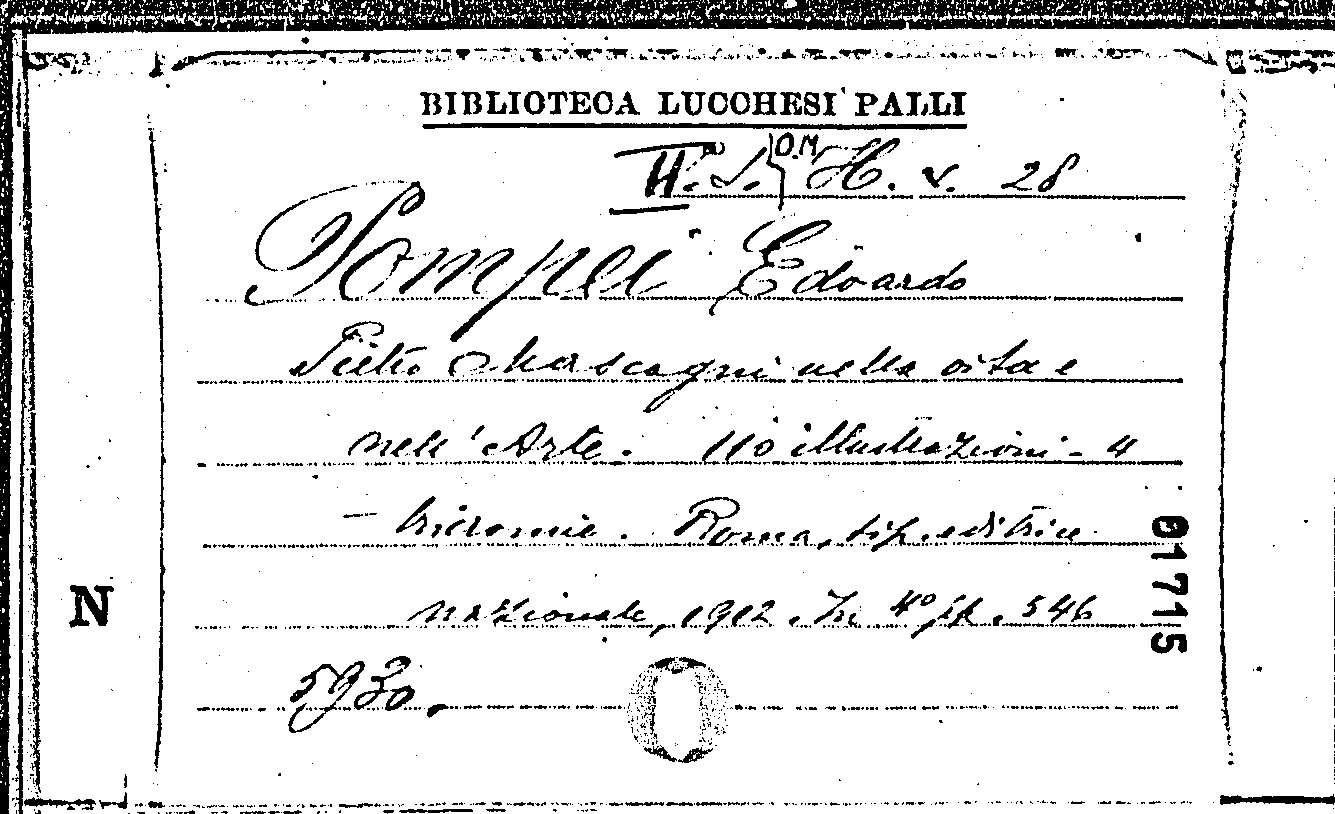 BIBLIOTECA LUCCHESI PALLI
O.M
II. S. H. v. 28
Pompei Edoardo
Pietro Mascagni nella vita e
nell'Arte. 110 illustrazioni - 4
- tricromie. Roma, tip. editrice
nazionale, 1912. In 4º pp. 546
5930.
N
01715